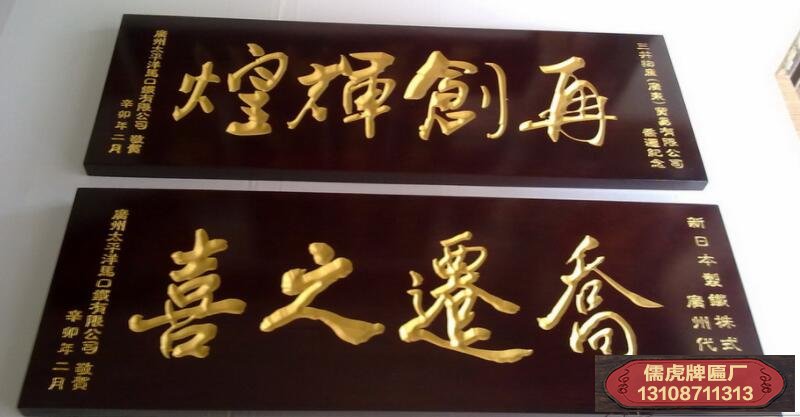 三井物産(廣東)貿易有限公司
喬遷紀念
再創輝煌
廣州太平洋馬口鐵有限公司 敬賀
辛卯年二月
新日本製鐵株式
廣州代
喬遷之喜
廣州太平洋馬口鐵有限公司 敬賀
辛卯年二月
儒虎牌匾厂
13108711313